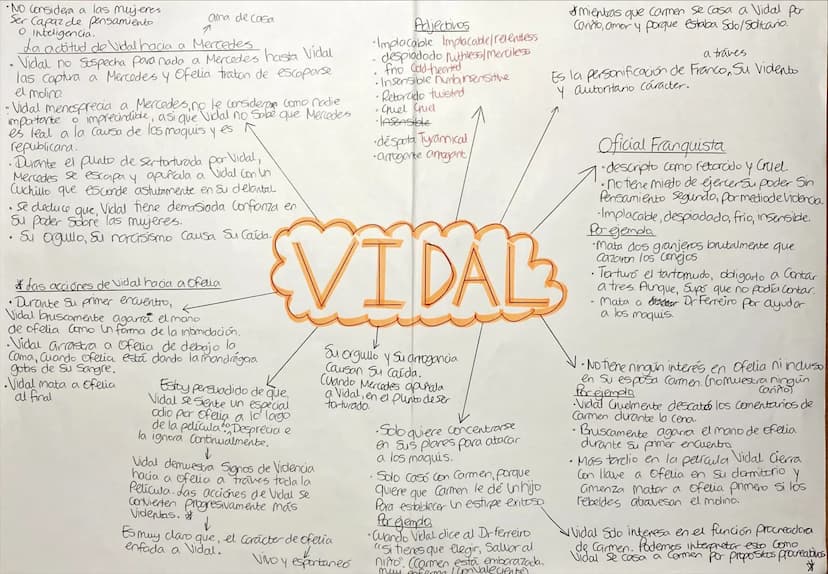 · No considera a las mujeres
Ser capaz de pensamiento
o inteligencia.
ama de casa
La actitud de Vidal hacia a Mercedes
· Vidal no sospecha para nada a Mercedes hasta Vidal
las captiva a Mercedes y Ofelia tratan de escaparse
el molino.
· Vidal menosprecia a Mercedes, no le consideran como nadie
importante o imprecindible, asi que Vidal no sabe que Mercedes
es leal a la causa de los maquis y es
republicana.
· Durante el punto de ser torturada por Vidal,
Mercedes se escapa y apuñala a Vidal con un
cuchillo que esconde astutamente en su delantal
· Se deduce que, Vidal tiene demasiada confianza en
su poder sobre las mujeres.
· Su orgullo, Su narcisismo causa Su caída.
Adjectivos
· Implacable Implacable/relentless
· despiadado ruthless/merciless
· frío cold-hearted
· Insensible numb/insensitive
· Retorcido twisted
· Cruel Cruel
· Insensible
· déspota Tyrannical
· arrogante arrogant
* mientras que Carmen se casa a Vidal por
cariño, amor y porque estaba Solo/Solitario.
a través
Es la personificación de Franco, Su Vidento
y autoritario carácter.
Oficial Franquista
· descripto como retorcido y cruel
· no tiene miedo de ejercer su poder sin
pensamiento segundo, por medio de violencia.
· Implacable, despiadado, frío, insensible.
Por ejemplo
· Mata dos granjeros brutalmente que
cazaron los conejos
· Torturó el tartamudo, obligato a contar
a tres Aunque, Supó que no podía contar.
· Mata a Dr Ferreiro por ayudar
a los maquis.
VIDAL
* Las acciones de Vidal hacia a Ofelia
· Durante Su primer encuentro,
Vidal bruscamente agarra el mano
de Ofelia como un forma de la intimidación.
· Vidal arrastra a Ofelia de debajo la
cama, cuando Ofelia está dando la mandrágora
gotas de Su Sangre.
· Vidal mata a Ofelia
al final
Estoy persuadido de que,
Vidal se siente un especial
odio por Ofelia a lo largo
de la película. Desprecia e
la ignora continualmente.
Vidal demuestra Signos de Violencia
hacia a Ofelia a través toda la
Película. Las acciones de Vidal se
convierten progresivamente más
Videntas. *
Es muy claro que, el carácter de Ofelia
enfada a Vidal.
vivo y espontáneo
Su orgullo y Su arrogancia
causan Su caída.
Cuando Mercedes apuñala
a Vidal, en el punto de ser
torturado.
· Solo quiere concentrarse
en sus planes para atacar
a los maquis.
· Solo casó con Carmen, porque
quiere que Carmen le dé un hijo
Para establecer un estirpe exitoso
Por ejemplo
· Cuando Vidal dice al Dr Ferreiro
"si tienes que elegir, Salvar al
niño". (Carmen está embarazada,
muy enferma (convaleciente)
· No tiene ningún interés en Ofelia ni incluso
en su esposa Carmen. (no muestra ningún
cariño)
Por ejemplo
· Vidal cruelmente descató los comentarios de
Carmen durante la cena.
· Bruscamente agarra el mano de Ofelia
durante Su primer encuentro.
· Más tardio en la película Vidal cierra
con llave a Ofelia en su darmitorio y
amenza matar a Ofelia primero si los
rebeldes atraviesan el molino.
Vidal Solo interesa en el función procreadora
de Carmen. Podemos interpretar esto como
Vidal se casa a Carmen por propositos procreativos
*